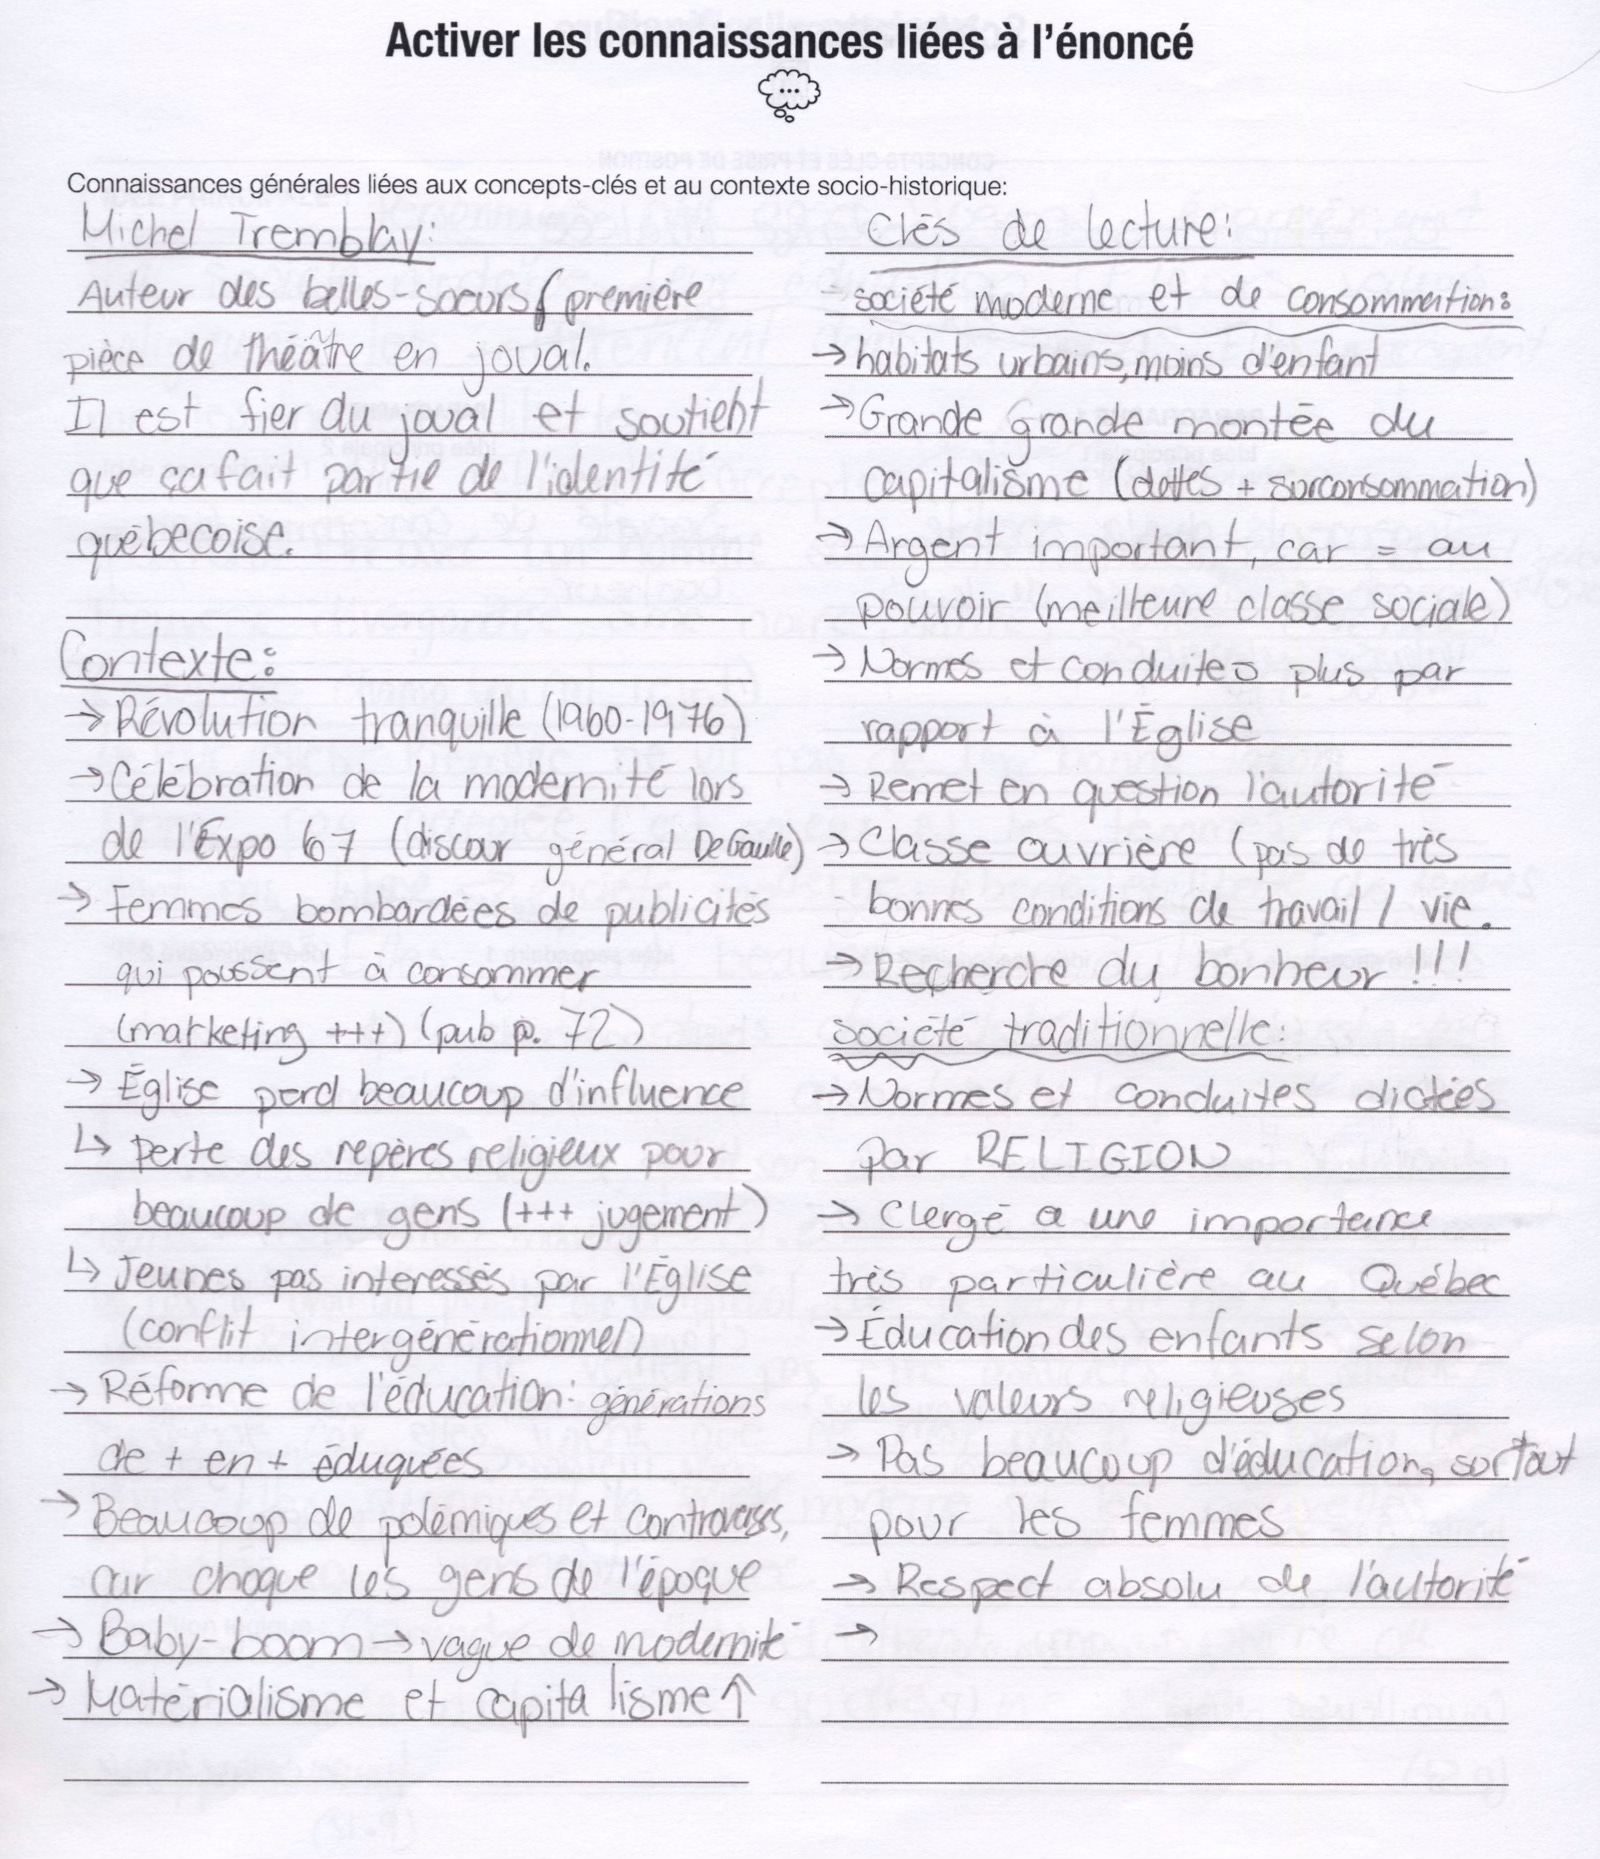 Activer les connaissances liées à l'énoncé
...
Connaissances générales liées aux concepts-clés et au contexte socio-historique:
Michel Tremblay:
Auteur des belles-soeurs ( première
pièce de théâtre en joual.
Il est fier du joual et soutient
que ça fait partie de l'identité
québecoise.
Contexte:
→ Révolution tranquille (1960-1976)
→ Célébration de la modernité lors
de l'Expo 67 (discour général De Gaulle)
→ Femmes bombardées de publicités
qui poussent à consommer
(marketing +++) (pub p. 72)
→ Église perd beaucoup d'influence
↳ perte des repères religieux pour
beaucoup de gens (+++ jugement)
↳ Jeunes pas interessés par l'Église
(conflit intergénérationnel)
→ Réforme de l'éducation: générations
de + en + éduquées
→ Beaucoup de polémiques et controverses,
car choque les gens de l'époque
→ Baby-boom → vague de modernité
→ Matérialisme et capitalisme ↑
Clés de lecture:
- société moderne et de consommation:
→ habitats urbains, moins d'enfant
→ Grande grande montée du
capitalisme (dettes + surconsommation)
→ Argent important, car = au
pouvoir (meilleure classe sociale)
→ Normes et conduites plus par
rapport à l'Église
→ Remet en question l'autorité
→ Classe ouvrière (pas de très
bonnes conditions de travail / vie.
→ Recherche du bonheur !!!
société traditionnelle:
→ Normes et conduites dictées
par RELIGION
→ Clergé a une importance
très particulière au Québec
→ Éducation des enfants selon
les valeurs religieuses
→ Pas beaucoup d'éducation, surtout
pour les femmes
→ Respect absolu de l'autorité
→